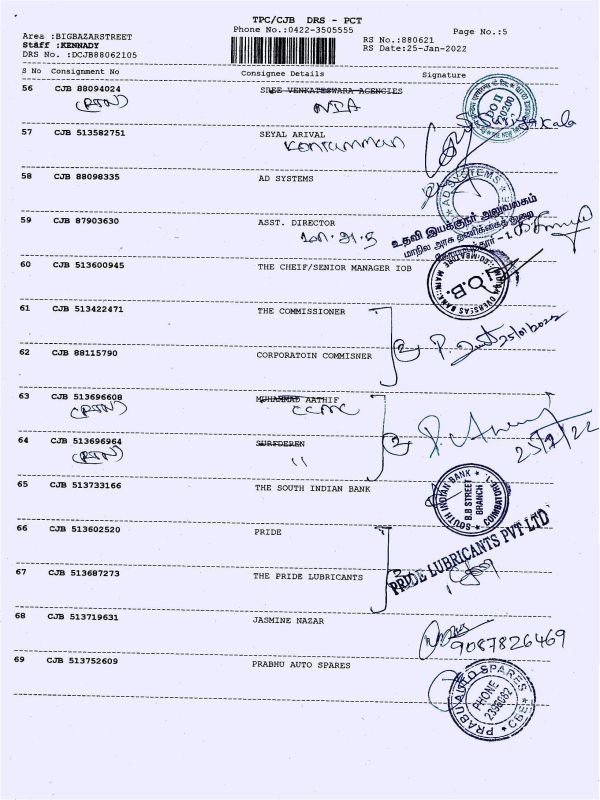 TPC/CJB DRS - PCT
Phone No.:0422-3505555
Page No.:5
Area :BIGBAZARSTREET
Staff :KENNADY
DRS No. :DCJB88062105
RS No.:880621
RS Date:25-Jan-2022
S No Consignment No Consignee Details Signature
56 CJB 88094024 SREE VENKATESWARA AGENCIES
(RTN) NIA
57 CJB 513582751 SEYAL ARIVAL
58 CJB 88098335 AD SYSTEMS
AD SYSTEMS
59 CJB 87903630 ASST. DIRECTOR
உதவி இயக்குநர் அலுவலகம்
மாநில அரசு தணிக்கைத் துறை
60 CJB 513600945 THE CHEIF/SENIOR MANAGER IOB
I.O.B.
61 CJB 513422471 THE COMMISSIONER
2 25/01/2022
62 CJB 88115790 CORPORATOIN COMMISNER
63 CJB 513696608 MUHAMMAD AATHIF
(RTN) CCMC
2 25/1/22
64 CJB 513696964 SURFDEREN
(RTN) "
65 CJB 513733166 THE SOUTH INDIAN BANK
SOUTH INDIAN BANK
B.B STREET
BRANCH
COIMBATORE-1
66 CJB 513602520 PRIDE
PRIDE LUBRICANTS PVT LTD
67 CJB 513687273 THE PRIDE LUBRICANTS
68 CJB 513719631 JASMINE NAZAR
9087826469
69 CJB 513752609 PRABHU AUTO SPARES
PRABU AUTO SPARES
PHONE
2396082
CBE